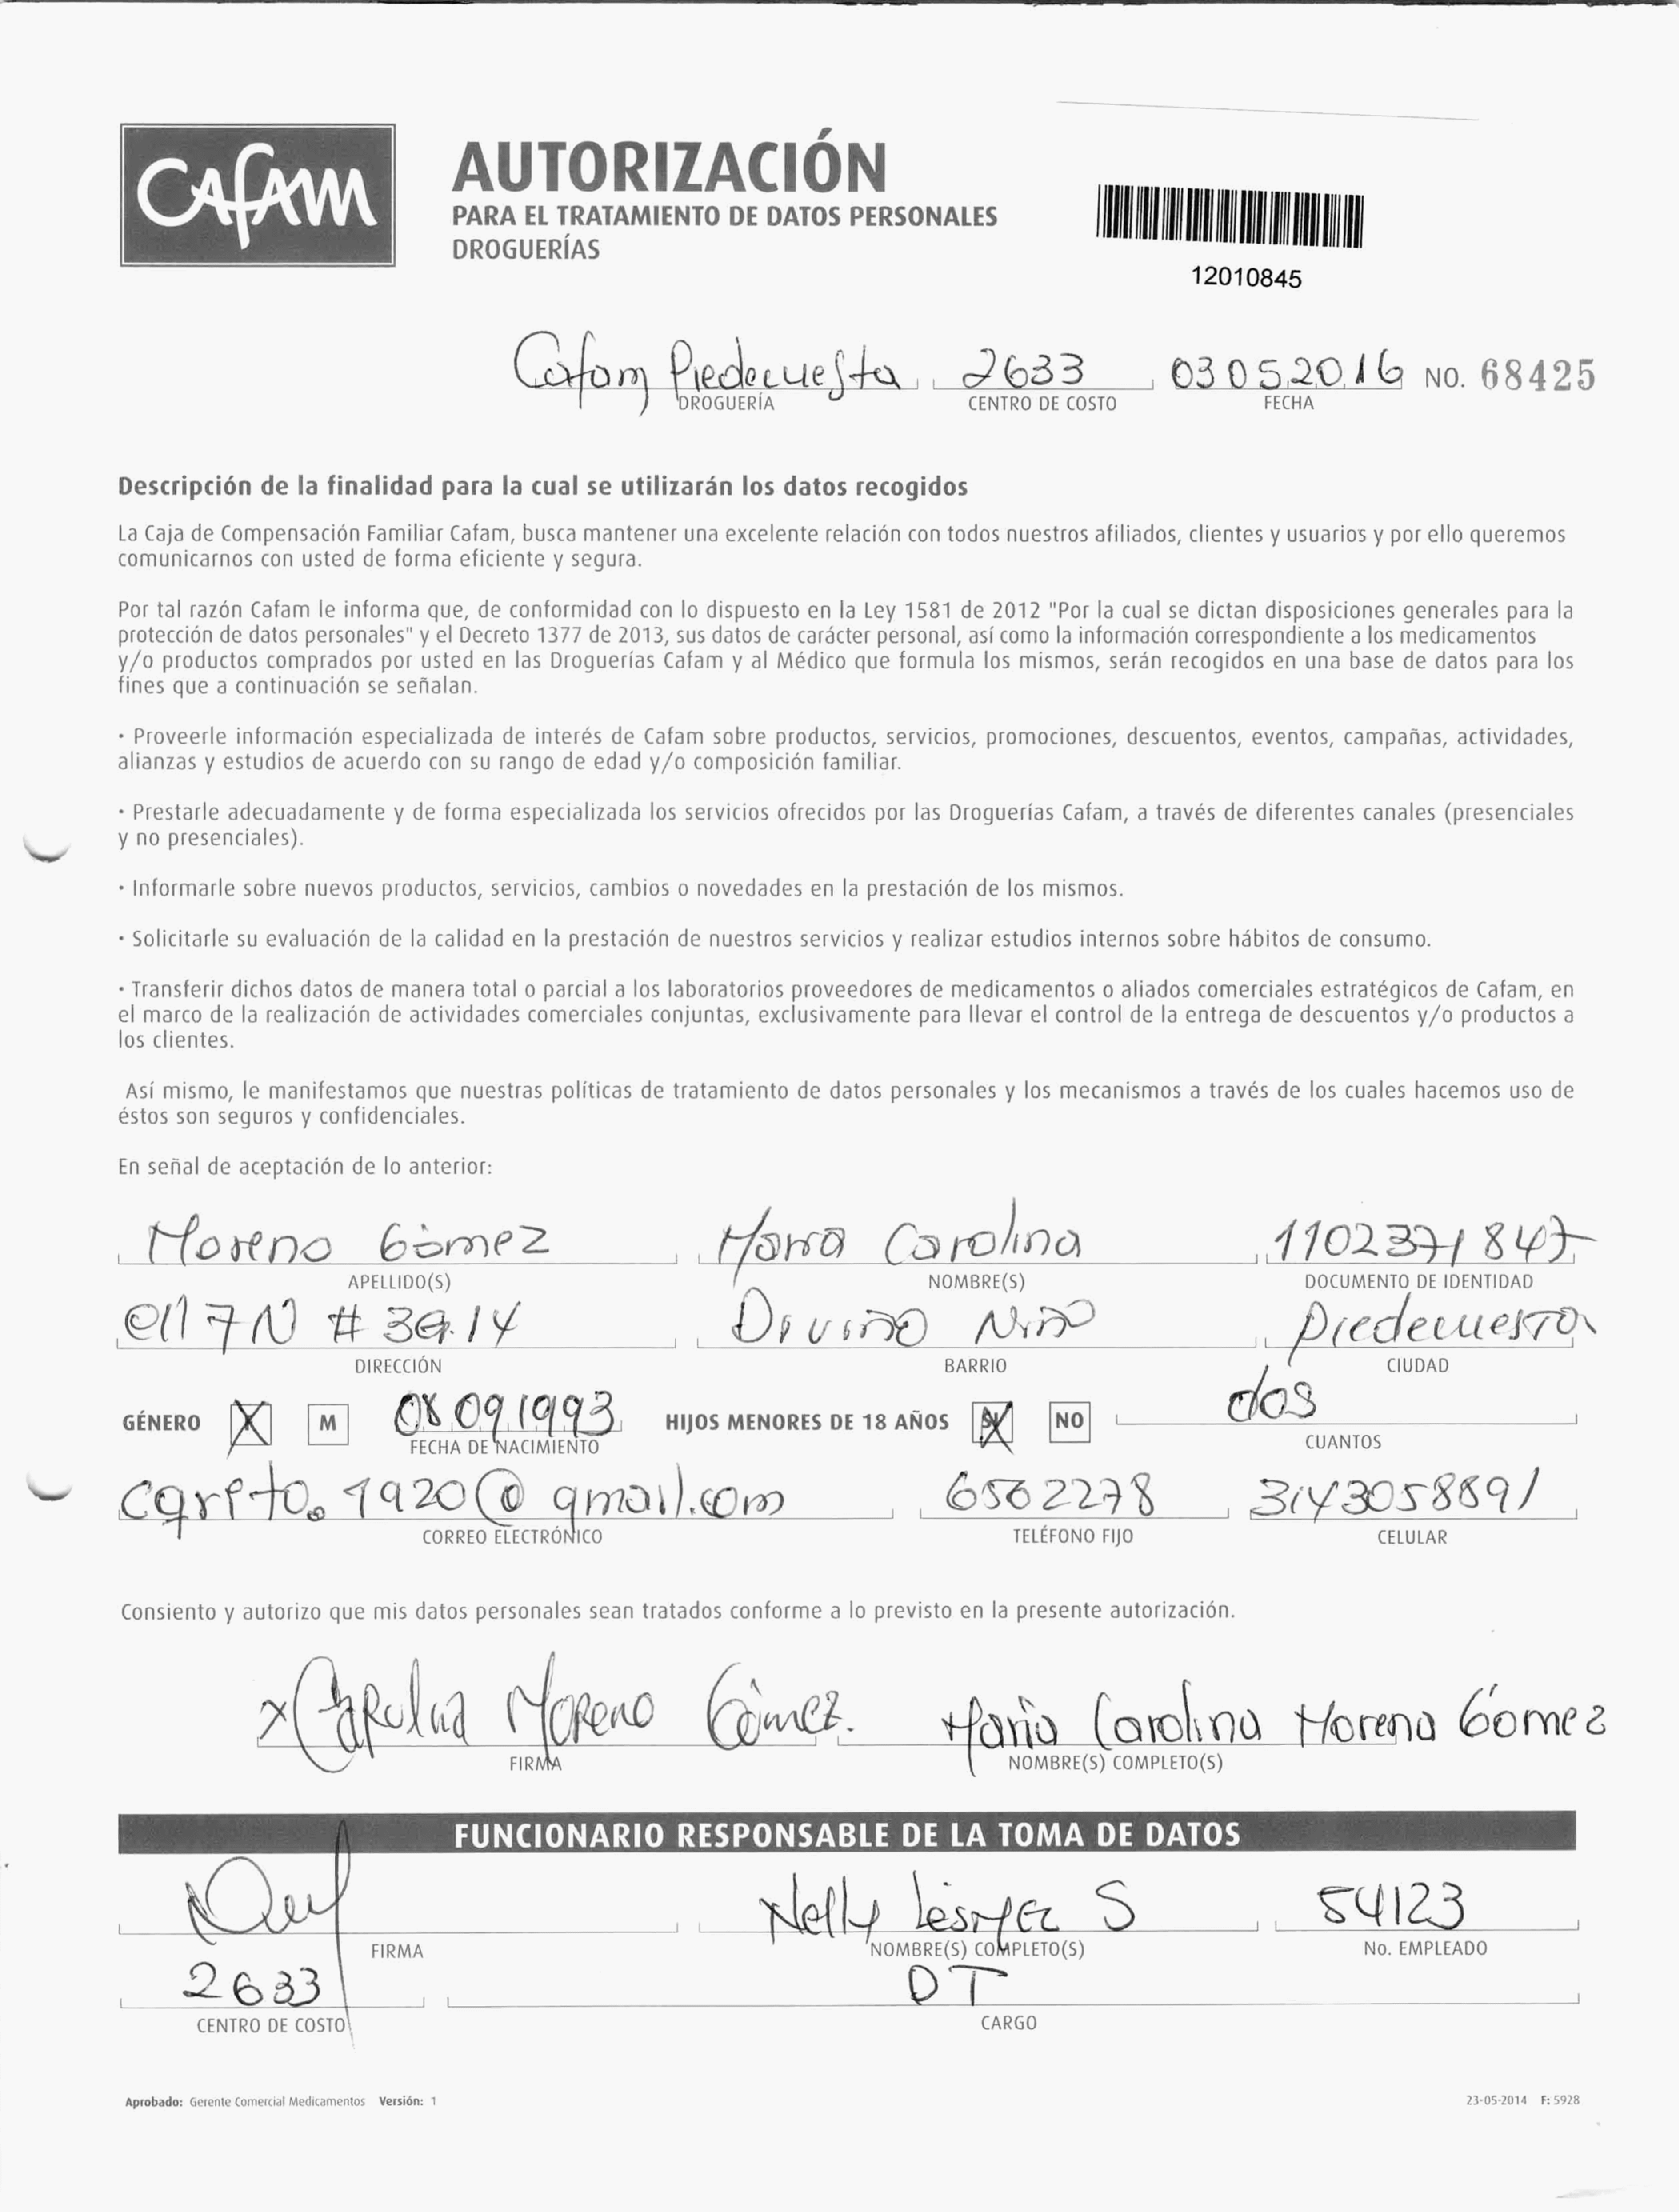 CAFAM
AUTORIZACIÓN
PARA EL TRATAMIENTO DE DATOS PERSONALES
DROGUERÍAS
12010845
Cafam Piedecuesta 2633 03 05 2016 NO. 68425
DROGUERÍA CENTRO DE COSTO FECHA
Descripción de la finalidad para la cual se utilizarán los datos recogidos
La Caja de Compensación Familiar Cafam, busca mantener una excelente relación con todos nuestros afiliados, clientes y usuarios y por ello queremos
comunicarnos con usted de forma eficiente y segura.
Por tal razón Cafam le informa que, de conformidad con lo dispuesto en la Ley 1581 de 2012 "Por la cual se dictan disposiciones generales para la
protección de datos personales" y el Decreto 1377 de 2013, sus datos de carácter personal, así como la información correspondiente a los medicamentos
y/o productos comprados por usted en las Droguerías Cafam y al Médico que formula los mismos, serán recogidos en una base de datos para los
fines que a continuación se señalan.
· Proveerle información especializada de interés de Cafam sobre productos, servicios, promociones, descuentos, eventos, campañas, actividades,
alianzas y estudios de acuerdo con su rango de edad y/o composición familiar.
· Prestarle adecuadamente y de forma especializada los servicios ofrecidos por las Droguerías Cafam, a través de diferentes canales (presenciales
y no presenciales).
· Informarle sobre nuevos productos, servicios, cambios o novedades en la prestación de los mismos.
· Solicitarle su evaluación de la calidad en la prestación de nuestros servicios y realizar estudios internos sobre hábitos de consumo.
· Transferir dichos datos de manera total o parcial a los laboratorios proveedores de medicamentos o aliados comerciales estratégicos de Cafam, en
el marco de la realización de actividades comerciales conjuntas, exclusivamente para llevar el control de la entrega de descuentos y/o productos a
los clientes.
Así mismo, le manifestamos que nuestras políticas de tratamiento de datos personales y los mecanismos a través de los cuales hacemos uso de
éstos son seguros y confidenciales.
En señal de aceptación de lo anterior:
Moreno Gómez Maria Carolina 1102371847
APELLIDO(S) NOMBRE(S) DOCUMENTO DE IDENTIDAD
Cll 7N # 3G.14 Divino Niño Piedecuesta
DIRECCIÓN BARRIO CIUDAD
GÉNERO X M 08 09 1993 HIJOS MENORES DE 18 AÑOS X NO dos
FECHA DE NACIMIENTO CUANTOS
1920@gmail.com 6562278 3143058891
CORREO ELECTRÓNICO TELÉFONO FIJO CELULAR
Consiento y autorizo que mis datos personales sean tratados conforme a lo previsto en la presente autorización.
x Carolina Moreno Gómez. Maria Carolina Moreno Gómez
FIRMA NOMBRE(S) COMPLETO(S)
FUNCIONARIO RESPONSABLE DE LA TOMA DE DATOS
Nelly S 54123
FIRMA NOMBRE(S) COMPLETO(S) No. EMPLEADO
2633 DT
CENTRO DE COSTO CARGO
Aprobado: Gerente Comercial Medicamentos Versión: 1 23-05-2014 F: 5928